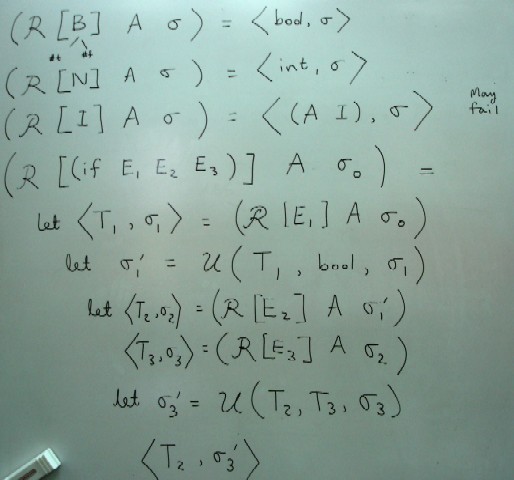 (R [B] A σ) = ⟨bool, σ⟩
#t #f
(R [N] A σ) = ⟨int, σ⟩
(R [I] A σ) = ⟨(A I), σ⟩ May fail
(R [(if E₁ E₂ E₃)] A σ₀) =
let ⟨T₁, σ₁⟩ = (R [E₁] A σ₀)
let σ₁' = U(T₁, bool, σ₁)
let ⟨T₂, σ₂⟩ = (R [E₂] A σ₁')
⟨T₃, σ₃⟩ = (R [E₃] A σ₂)
let σ₃' = U(T₂, T₃, σ₃)
⟨T₂, σ₃'⟩